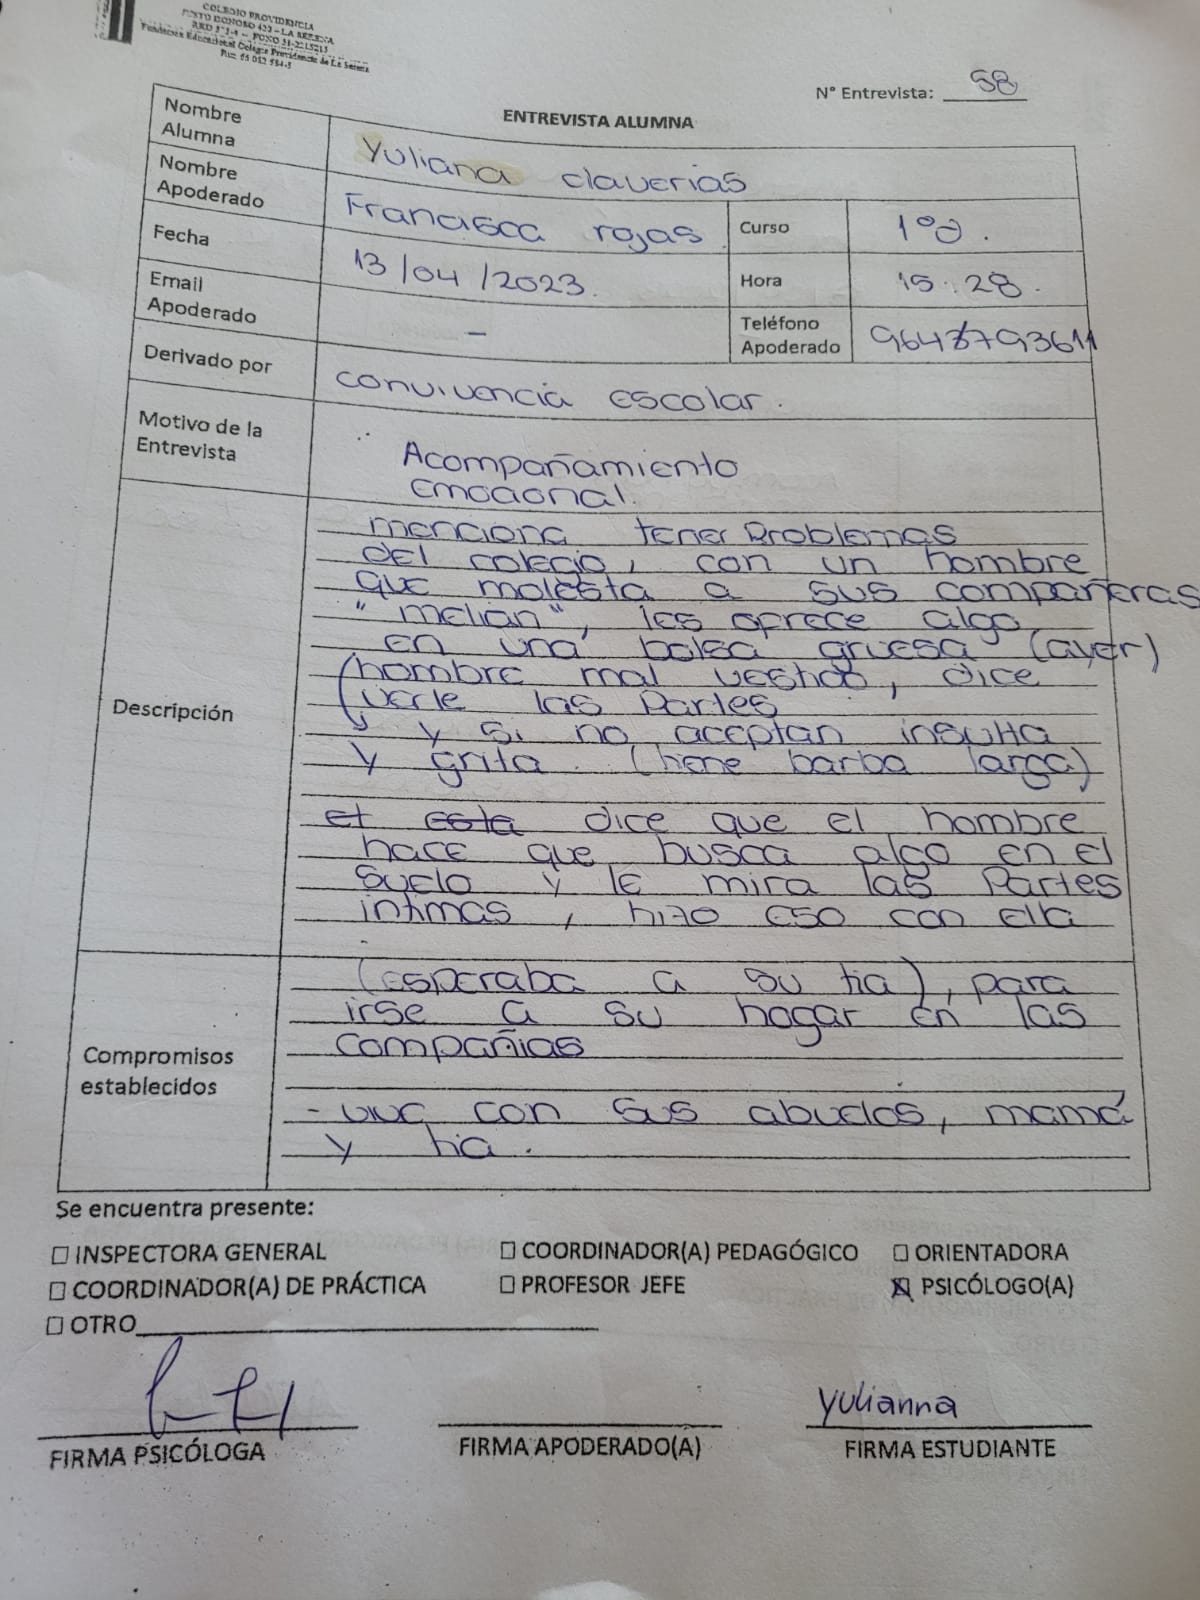 COLEGIO PROVIDENCIA
JUSTO DONOSO 433 – LA SERENA
Fundación Educacional Colegio Providencia de La Serena
N° Entrevista: 58
ENTREVISTA ALUMNA
Nombre Alumna Yuliana claverias
Nombre Apoderado Francisca rojas
Curso 1°
Fecha 13/04/2023.
Hora 15:28.
Email Apoderado -
Teléfono Apoderado
Derivado por convivencia escolar.
Motivo de la Entrevista Acompañamiento
Emocional.
Descripción
menciona tener problemas
del colegio, con un hombre
que molesta a sus compañeras
"melian", les ofrece algo
en una bolsa gruesa (ayer)
(hombre mal vestido, dice
verle las partes
y si no aceptan insulta
y grita. (tiene barba larga)
et esta dice que el hombre
hace que busca algo en el
suelo y le mira las partes
intimas, hizo eso con ella
Compromisos establecidos
(esperaba a su tia), para
irse a su hogar en las
compañias
- vive con sus abuelos, mamá
y tia.
Se encuentra presente:
☐ INSPECTORA GENERAL ☐ COORDINADOR(A) PEDAGÓGICO ☐ ORIENTADORA
☐ COORDINADOR(A) DE PRÁCTICA ☐ PROFESOR JEFE ☒ PSICÓLOGO(A)
☐ OTRO
Yulianna
FIRMA PSICÓLOGA FIRMA APODERADO(A) FIRMA ESTUDIANTE